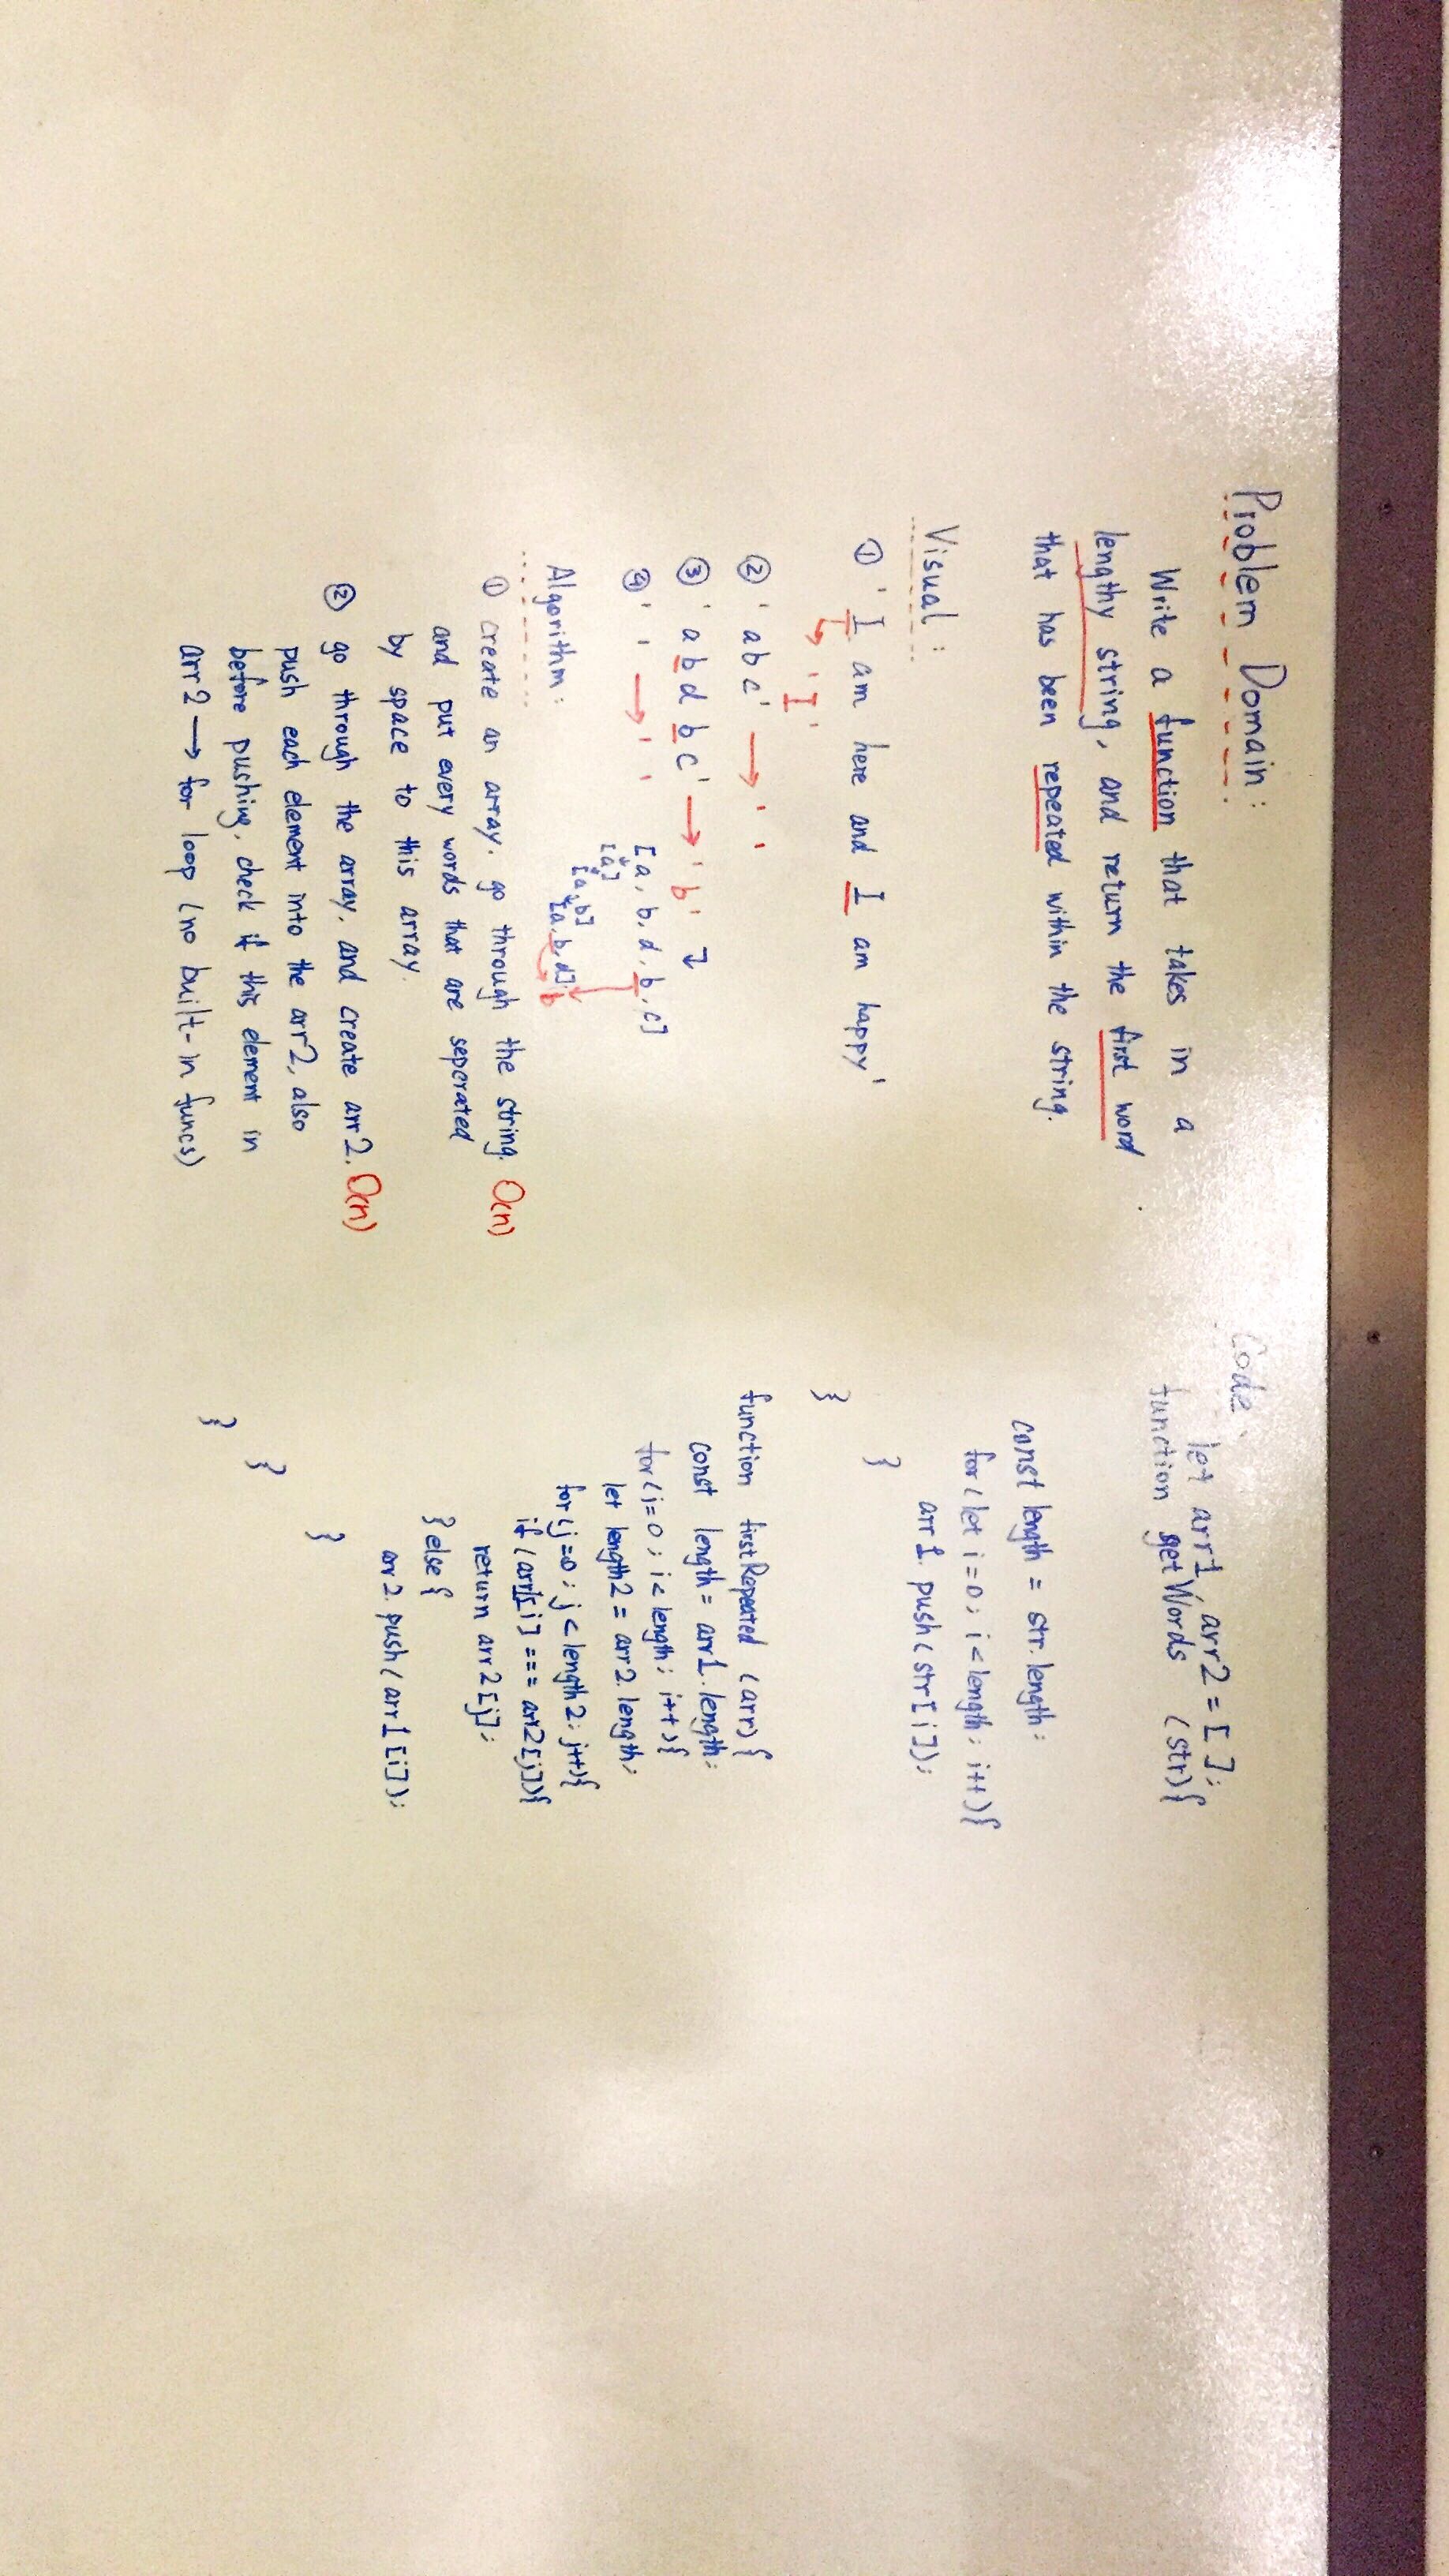 Problem Domain:
Write a function that takes in a
lengthy string, and return the first word
that has been repeated within the string.
Visual:
① 'I am here and I am happy'
'I'
② 'abc' → ' '
③ 'abdbc' → 'b' ↴
[a, b, d, b, c]
④ ' ' → ' '
[a]
[a, b]
[a, b, d] b
Algorithm:
① create an array. go through the string. O(n)
and put every words that are seperated
by space to this array.
② go through the array, and create arr2. O(n)
push each element into the arr2, also
before pushing, check if this element in
arr2 → for loop (no built-in funcs)
Code.
let arr1, arr2 = [];
function getWords (str){
const length = str.length;
for (let i=0; i<length; i++){
arr1.push(str[i]);
}
}
function firstRepeated (arr){
const length = arr1.length;
for (i=0; i<length; i++){
let length2 = arr2.length;
for (j=0; j<length2; j++){
if (arr1[i] === arr2[j]){
return arr2[j];
} else {
arr2.push(arr1[i]);
}
}
}